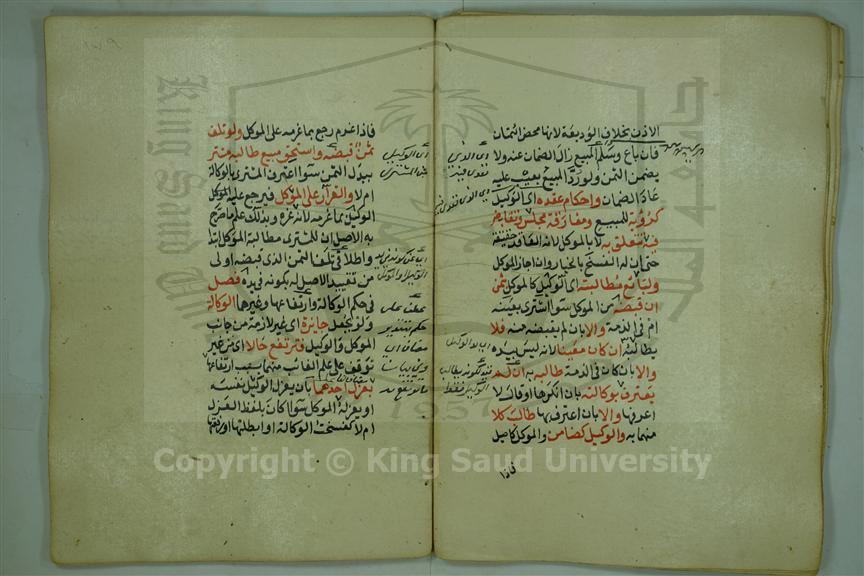 الاذن بخلاف الوديعة لانها محض ائتمان
فان باع وسلم المبيع زال الضمان عنه ولا
يضمن الثمن ولو رد المبيع بعيب عليه
عاد الضمان واحكام عقده اى الوكيل
كرؤية للمبيع ومفارقة مجلس وتقابض
فيه تتعلق به لا بالموكل لانه العاقد حقيقة
حتى ان له الفسخ بالخيار وان اجاز الموكل
ولبائع مطالبته اى الوكيل كالموكل بثمن
ان قبضه من الموكل سوا اشترى بعينه
ام في الذمة والا بان لم يقبضه منه فلا
يطالبه ان كان معينا لانه ليس بيده
والا بان كان في الذمة طالبه به ان لم
يعترف بوكالته بان انكرها او قال لا
اعرفها والا بان اعترف بها طالب كلا
منهما به والوكيل كضامن والموكل كاصيل
فاذا
فاذا غرم رجع بما غرمه على الموكل ولو تلف
ثمن قبضه واستحق مبيع طالبه مشتر
ببدل الثمن سوا اعترف المشترى بالوكالة
ام لا والقرار على الموكل فيرجع عليه
الوكيل بما غرمه لانه غره وبذلك علم ما صرح
به الاصل ان للمشترى مطالبة الموكل ابتدا
واطلاقى تلف الثمن الذى قبضه اولى
من تقييد الاصل له بكونه في يده فصل
في حكم الوكالة وارتفاعها وغيرها الوكالة
ولو بجعل جائزة اى غير لازمة من جانب
الموكل والوكيل فترتفع حالا اى من غير
توقف على علم الغائب منهما بسبب ارتفاعها
بعزل احدهما بان يعزل الوكيل نفسه
او يعزله الموكل سوا كان بلفظ العزل
ام لا كفسخت الوكالة او ابطلتها او رفعتها
اى الوكيل
Copyright © King Saud University
King Saud University
1957